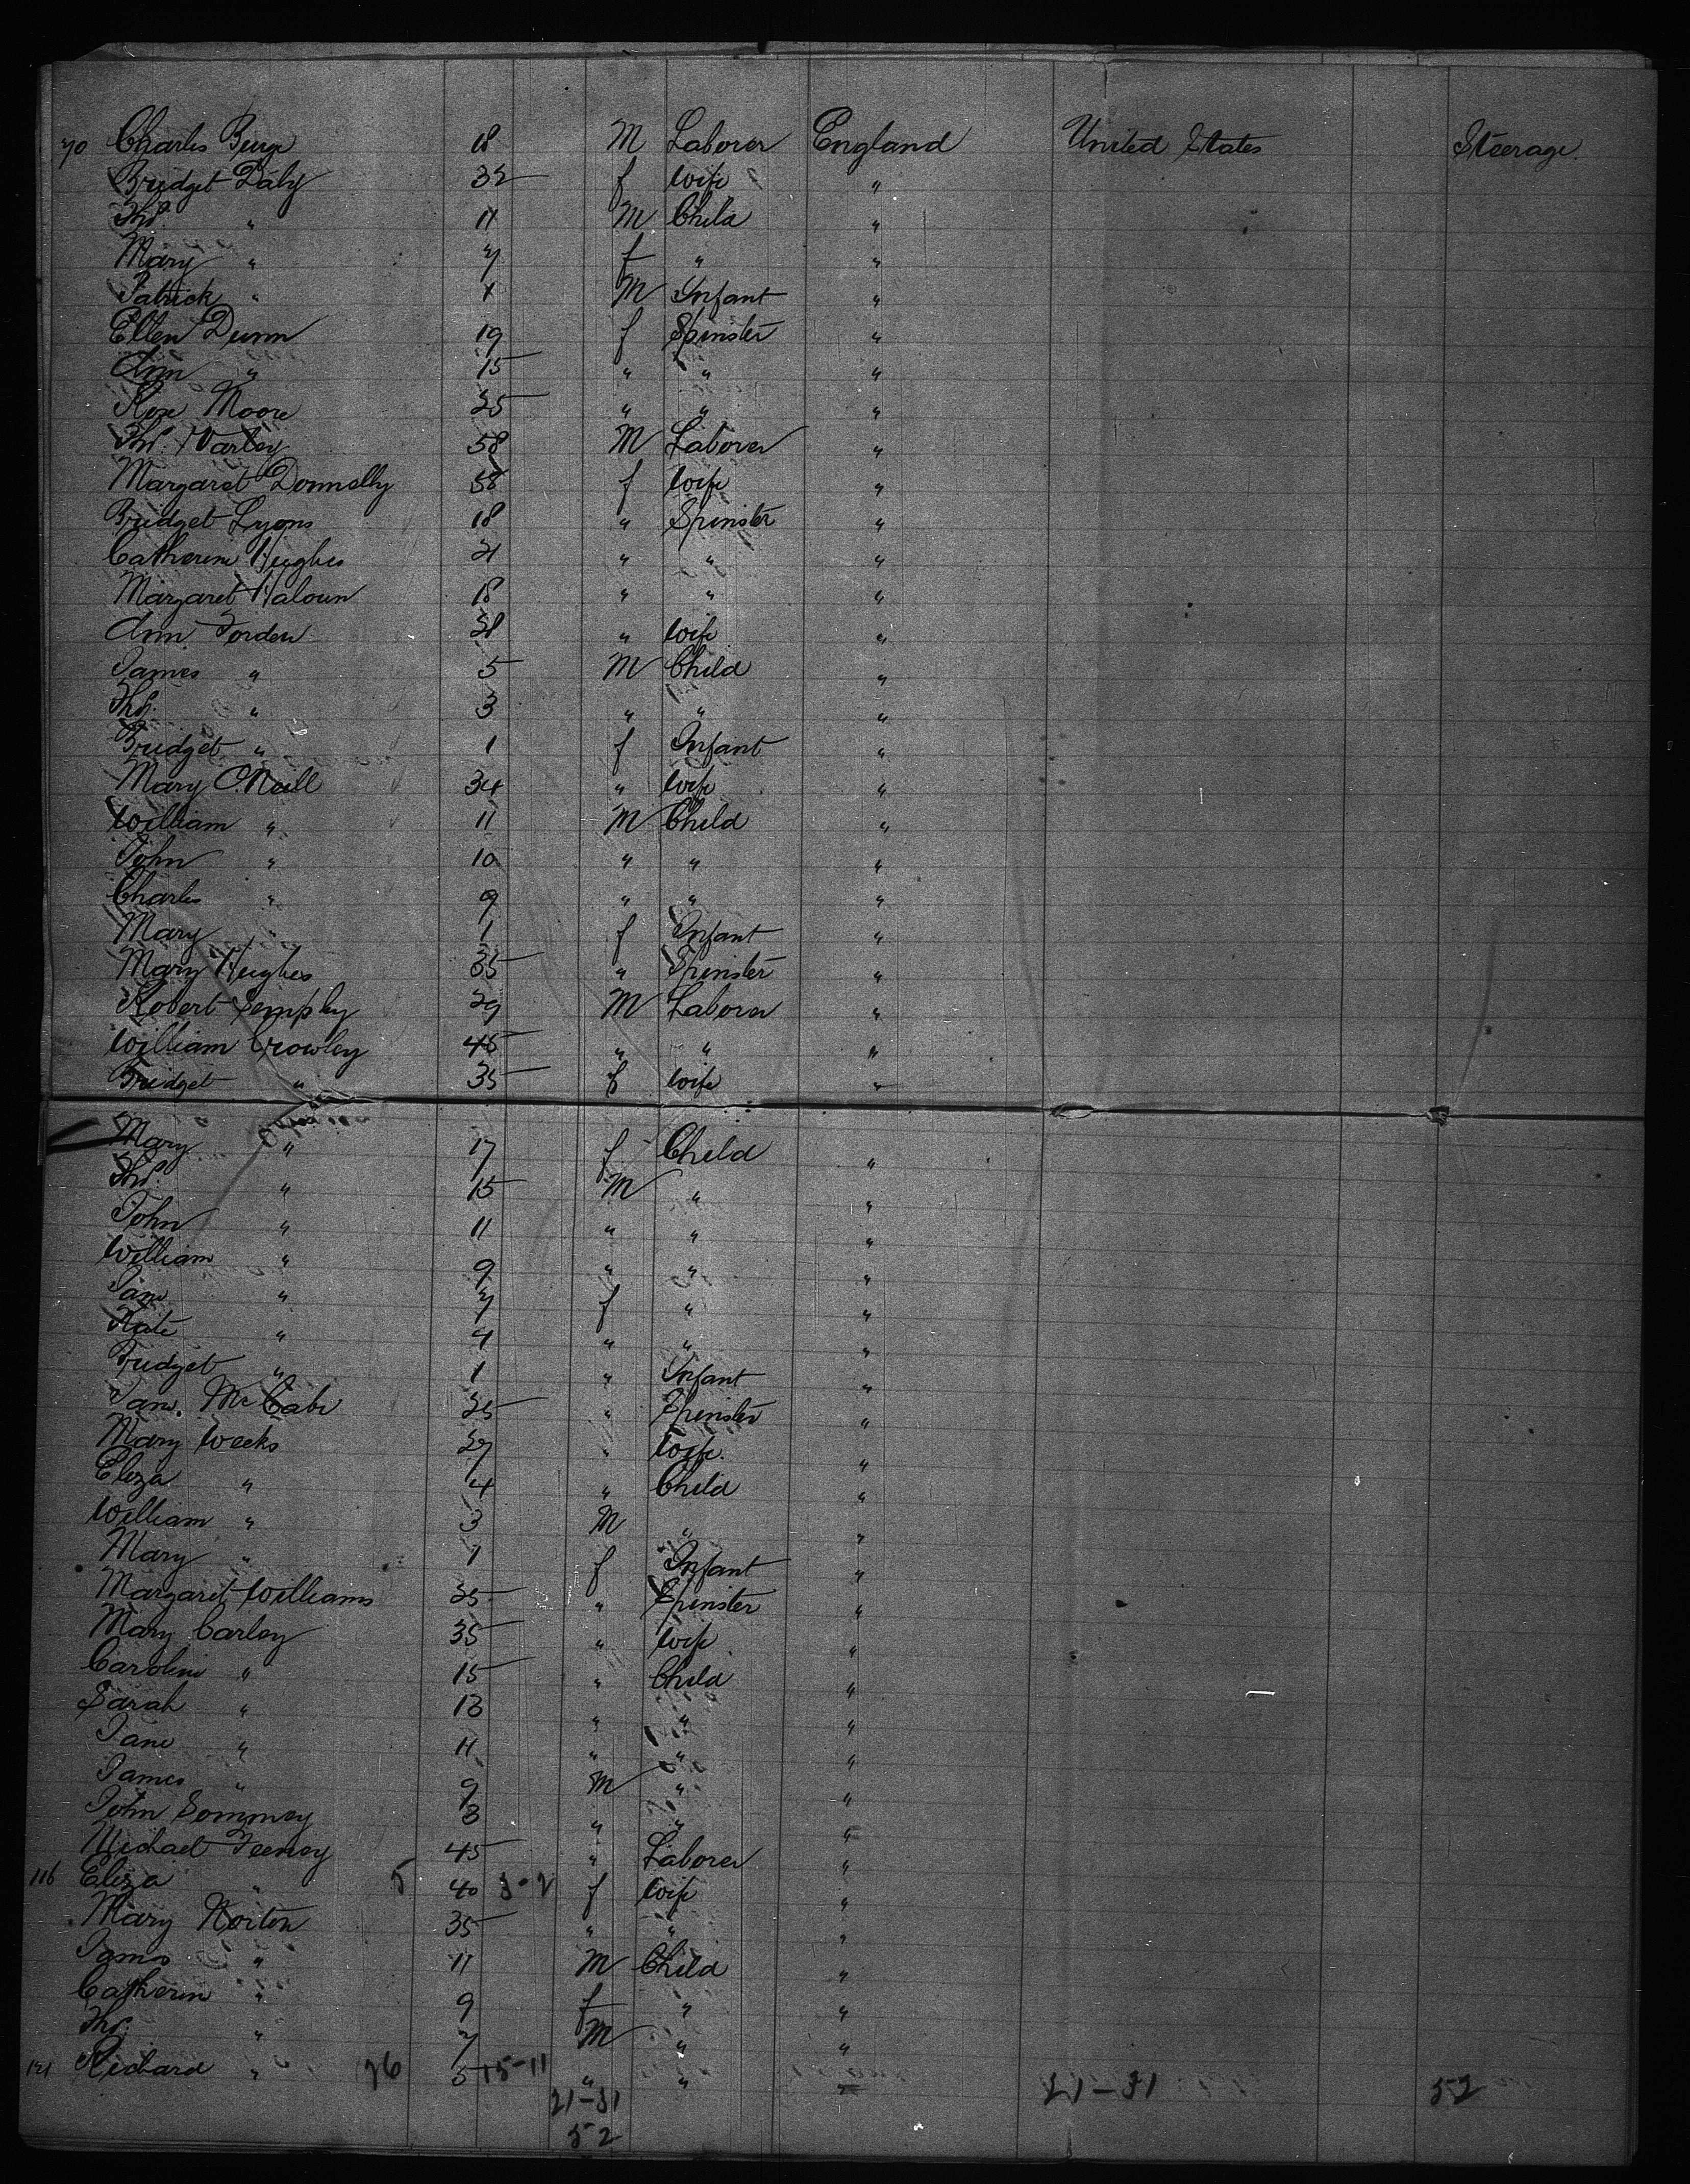 70 Charles Burge 18 M Laborer England United States Steerage.
Bridget Daly 32 f wife "
Thos. " 11 M Child "
Mary " 7 f " "
Patrick " 1 M Infant "
Ellen Dunn 19 f Spinster "
Ann " 15 " " "
Rose Moore 25 " " "
Thos. Varley 58 M Laborer "
Margaret Donnelly 38 f wife "
Bridget Lyons 18 " Spinster "
Catherine Hughes 21 " " "
Margaret Haloun 18 " " "
Ann Forden 31 " wife "
James " 5 M Child "
Thos. " 3 " " "
Bridget " 1 f Infant "
Mary O'Neill 34 " wife "
William " 11 M Child "
John " 10 " " "
Charles " 9 " " "
Mary " 1 f Infant "
Mary Hughes 35 " Spinster "
Robert Sempley 29 M Laborer "
William Crowley 45 " " "
Bridget " 35 f wife "
Mary " 17 f Child "
Thos. " 15 M " "
John " 11 " " "
William " 9 " " "
Jane " 7 f " "
Kate " 4 " " "
Bridget " 1 " Infant "
Jane McCabe 25 " Spinster "
Mary Weeks 27 " wife. "
Eliza " 4 " Child "
William " 3 M " "
Mary " 1 f Infant "
Margaret Williams 25 " Spinster "
Mary Carley 35 " wife "
Caroline " 15 " Child "
Sarah " 13 " " "
Jane " 11 " " "
James " 9 M " "
John Sommey 3 " " "
Michael Feeney 45 " Laborer "
116 Eliza " 5 40 3-2 f wife "
Mary Norton 35 " " "
James " 11 M Child "
Catherine " 9 f " "
Thos. " 7 M " "
121 Richard " 76 5 15-11 " " " 21-31 52
21-31
52